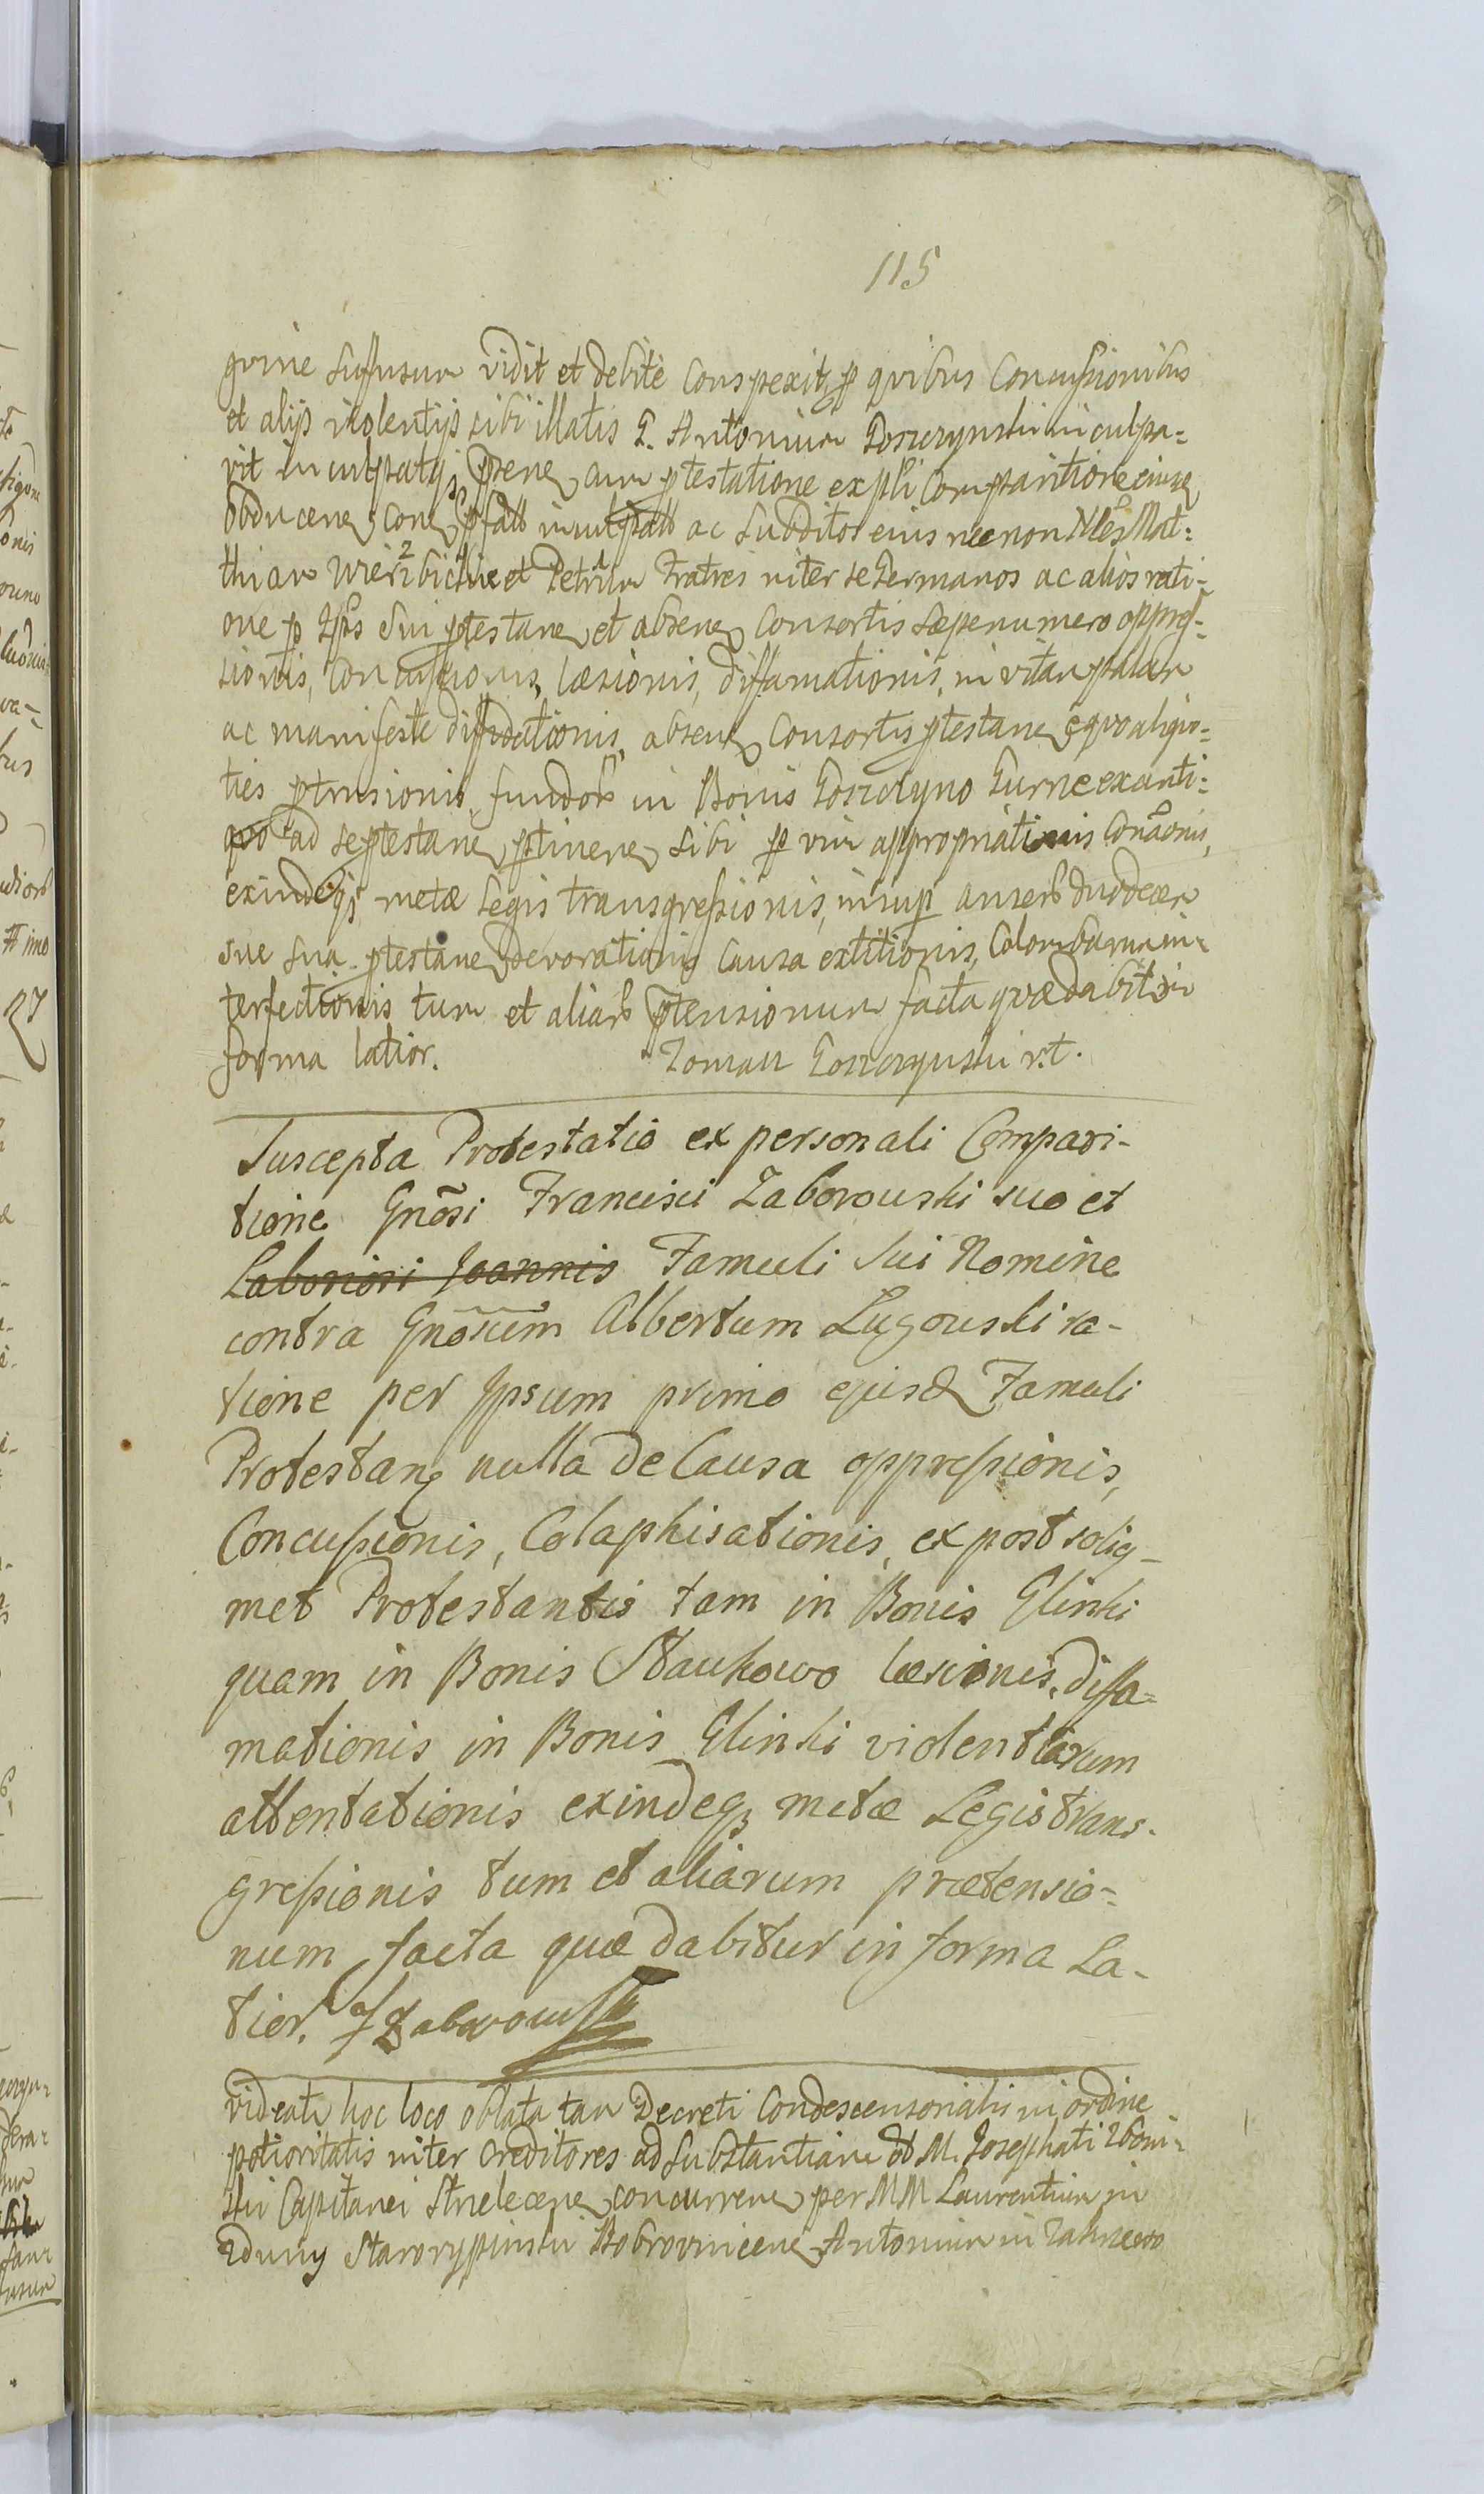 115
gvine suffusum vidit et debitè conspexit, p quibus concussionibus
et alijs violentijs sibi illatis G. Antonium Goszczynski inculpa=
vit inculpatq; psene cum ptestatione expli Comparitione eiusq
obducene contra pfatt inculpatt ac subditos eius nec non Nles Mat=
thiam Wierzbickie et Petrum Fratres inter se Germanos ac alios rati=
one p Ipss sui ptestane et absene Consortis sæpenumero oppres=
sionis, concussionis, læsionis, diffamationis, in vitam palam
ac manifeste diffidationis, absene Consortis ptestane equo aliquo=
ties ptrusionis, fundor in Bonis Goszczyno Gurne ex anti=
quo ad se ptestane ptinene sibi p vim appropriationis Conaonis,
exindeq; metæ Legis transgressionis, insup anser duodecem
sue sua ptestane devorationis causa extitionis, Columbarum in=
terfectionis tum et aliar ptensionum facta quæ dabit in
forma latior. Toman Goszczynski r.t.
Suscepta Protestatio ex personali Compari-
tione Gnosi Francisci Zaborouski suo et
Laboriosi Joannis Famuli sui Nomine
contra Gnosum Albertum Lugouski ra-
tione per Ipsum primo ejusd Famuli
Protestan nulla de Causa oppressionis,
Concussionis, Colaphisationis, ex post soliq-
met Protestantis tam in Bonis Glinki
quam in Bonis Staukowo læsionis, diffa=
mationis in Bonis Glinki violentiarum
attentationis exindeq; metæ Legis trans-
gressionis tum et aliarum prætensio=
num facta quæ dabitur in forma La-
tior. F Zaborowski
videatr hoc loco oblata tam Decreti Condescensorialis in ordine
potioritatis inter Creditores ad substantiam M. Josephati Zboin=
ski Capitanei Strelecene concurrene per MM Laurentium in
Zduny Starorypinski Bobrovnicene, Antonium in Zakrzewo